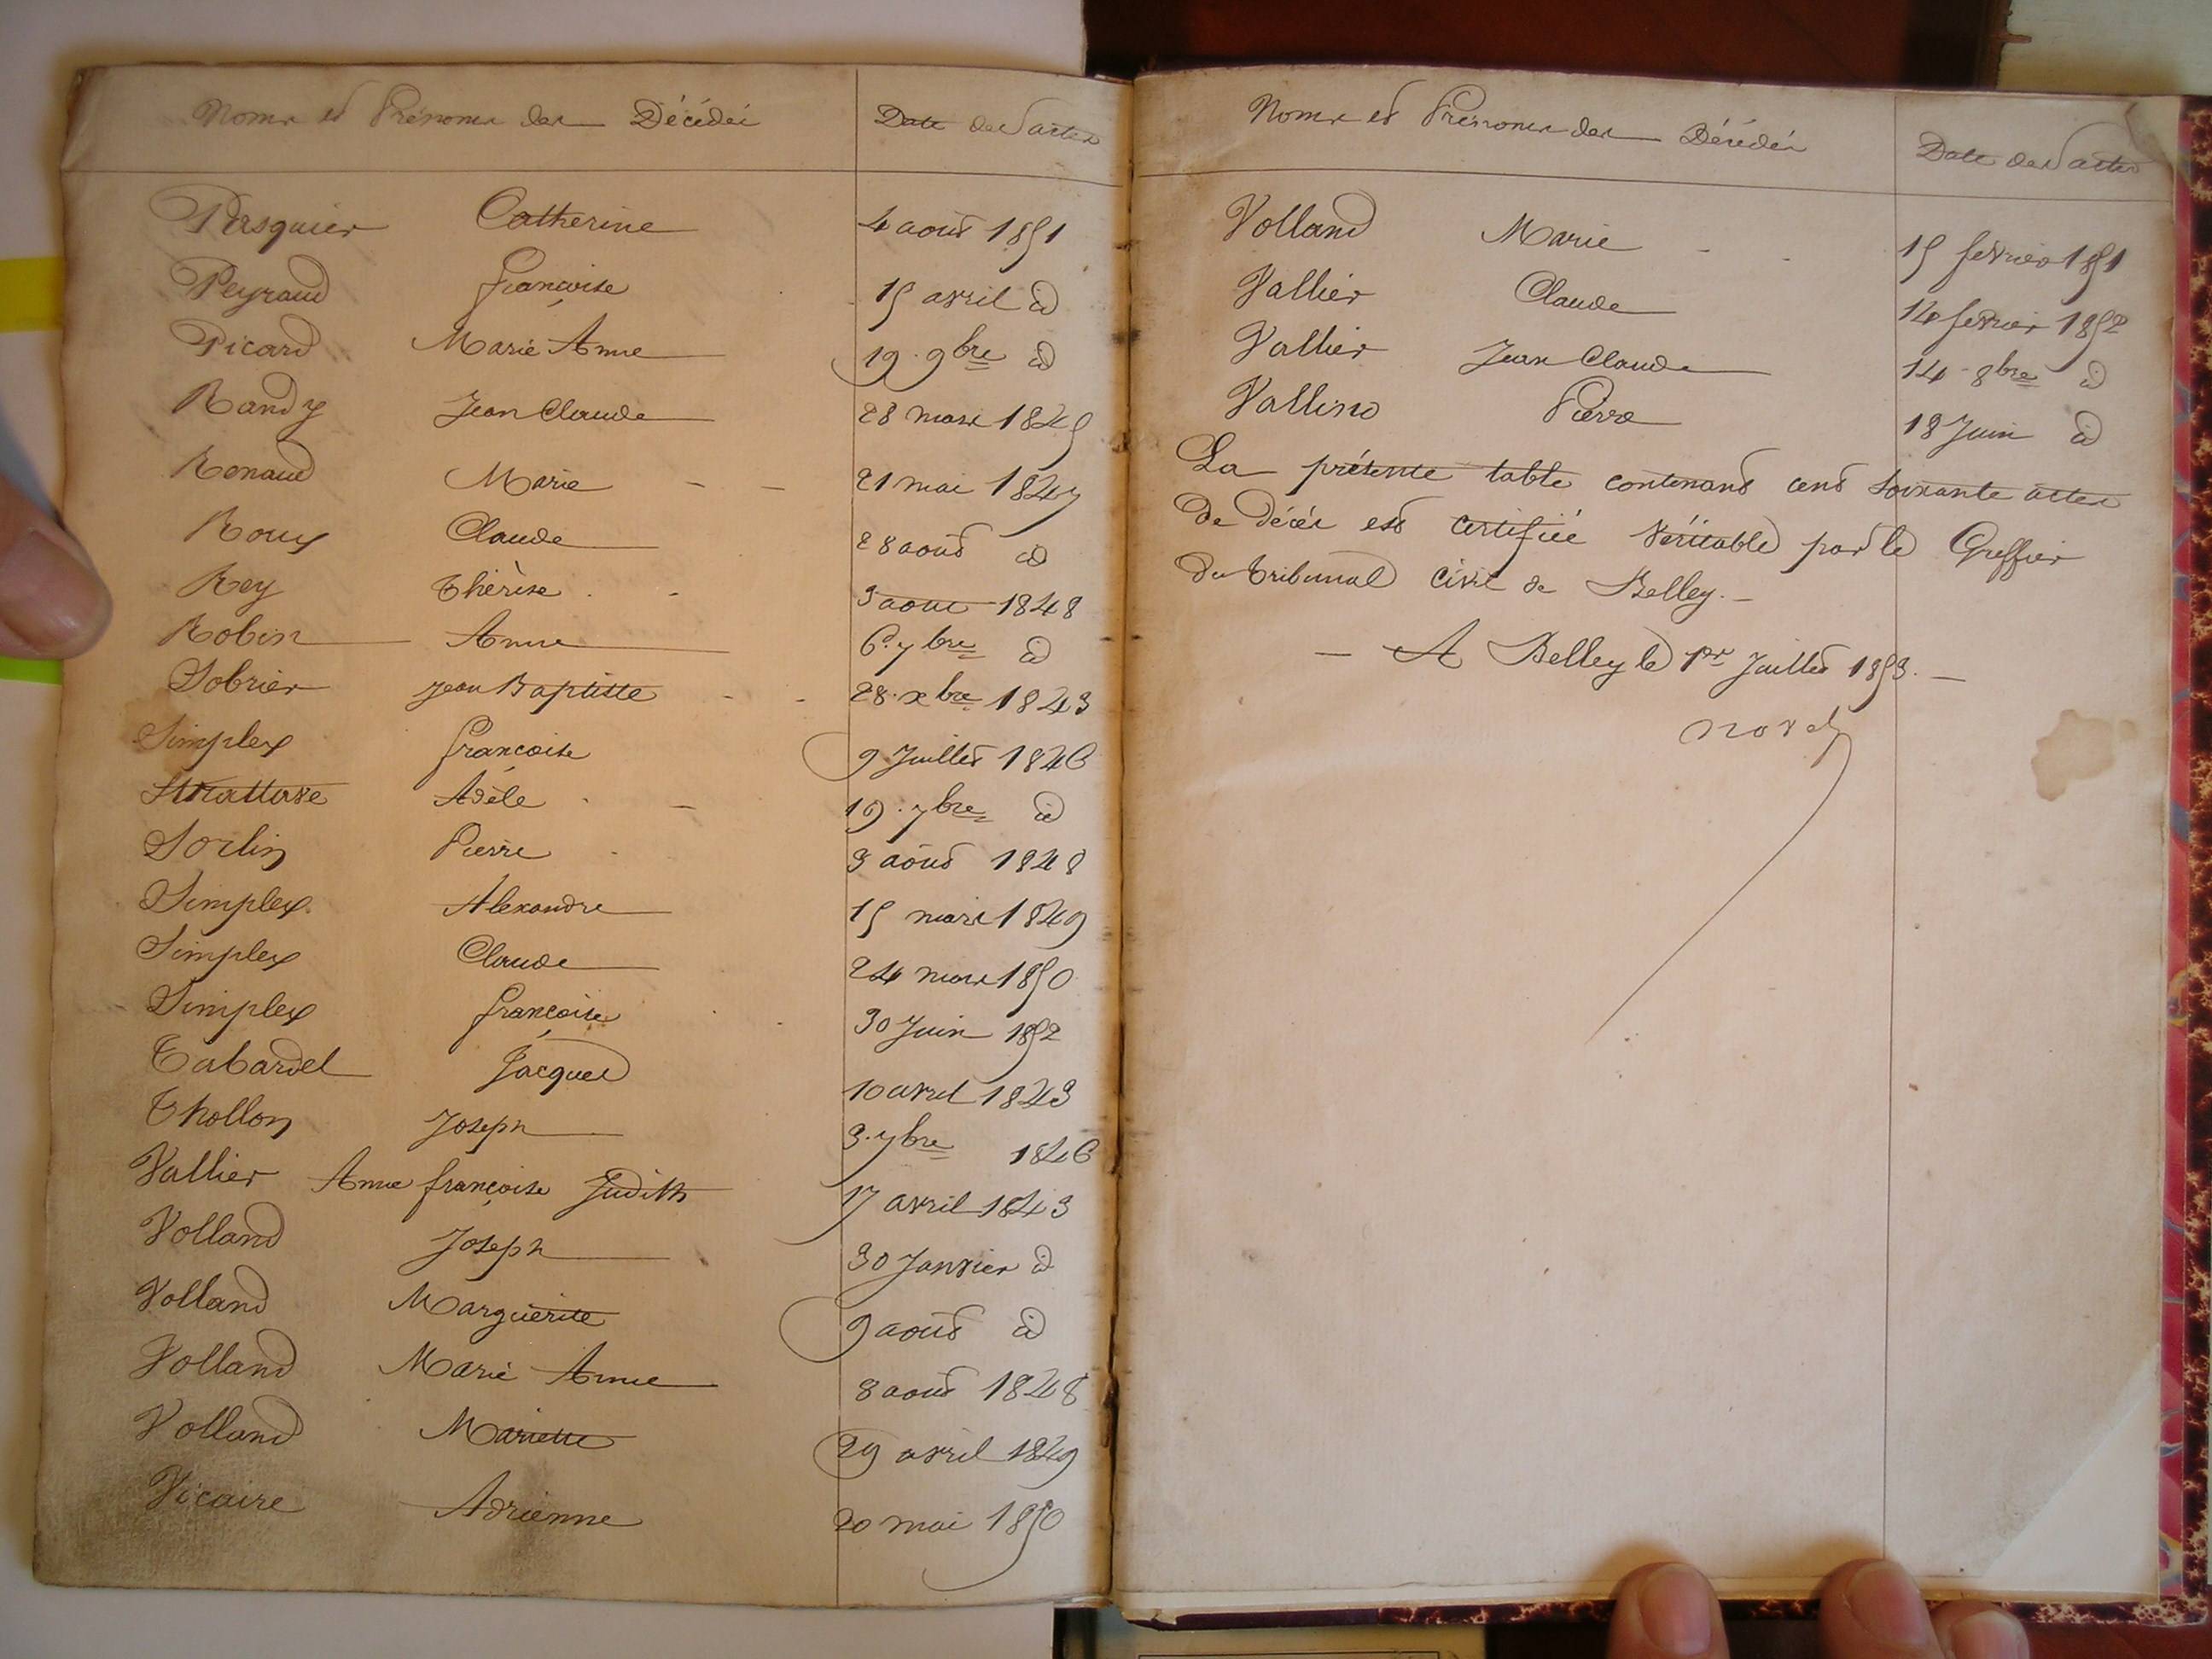 Noms et Prénoms des Décédés Date des actes
Pasquier Catherine 4 août 1851
Peyraud françoise 15 avril id
Picard Marie Anne 19. 9bre id
Randy Jean Claude 28 mars 1845
Renaud Marie 21 mai 1847
Roux Claude 28 août id
Rey Thérèse 3 aout 1848
Robin Anne 6. 7bre id
Sobrier Jean Baptiste 28. xbre 1843
Simplex françoise 9 Juillet 1846
Adèle 19. 7bre id
Sorlin Pierre 3 août 1848
Simplex Alexandre 15 mars 1849
Simplex Claude 24 mars 1850
Simplex françoise 30 Juin 1852
Tabardel Jacques 10 avril 1843
Thollon Joseph 3. 7bre 1846
Vallier Anne françoise Judith 17 avril 1843
Volland Joseph 30 Janvier id
Volland Marguerite 9 août id
Volland Marie Anne 8 août 1848
Volland Mariette 29 avril 1849
Vicaire Adrienne 20 mai 1850
Noms et Prénoms des Décédés Date des actes
Volland Marie 15 fevrier 1851
Vallier Claude 14 fevrier 1852
Vallier Jean Claude 14 8bre id
Vallino Pierre 18 Juin id
La présente table contenant cent soixante actes
de décès est certifiée véritable par le Greffier
du tribunal civil de Belley. -
- A Belley le 1er Juillet 1853. -